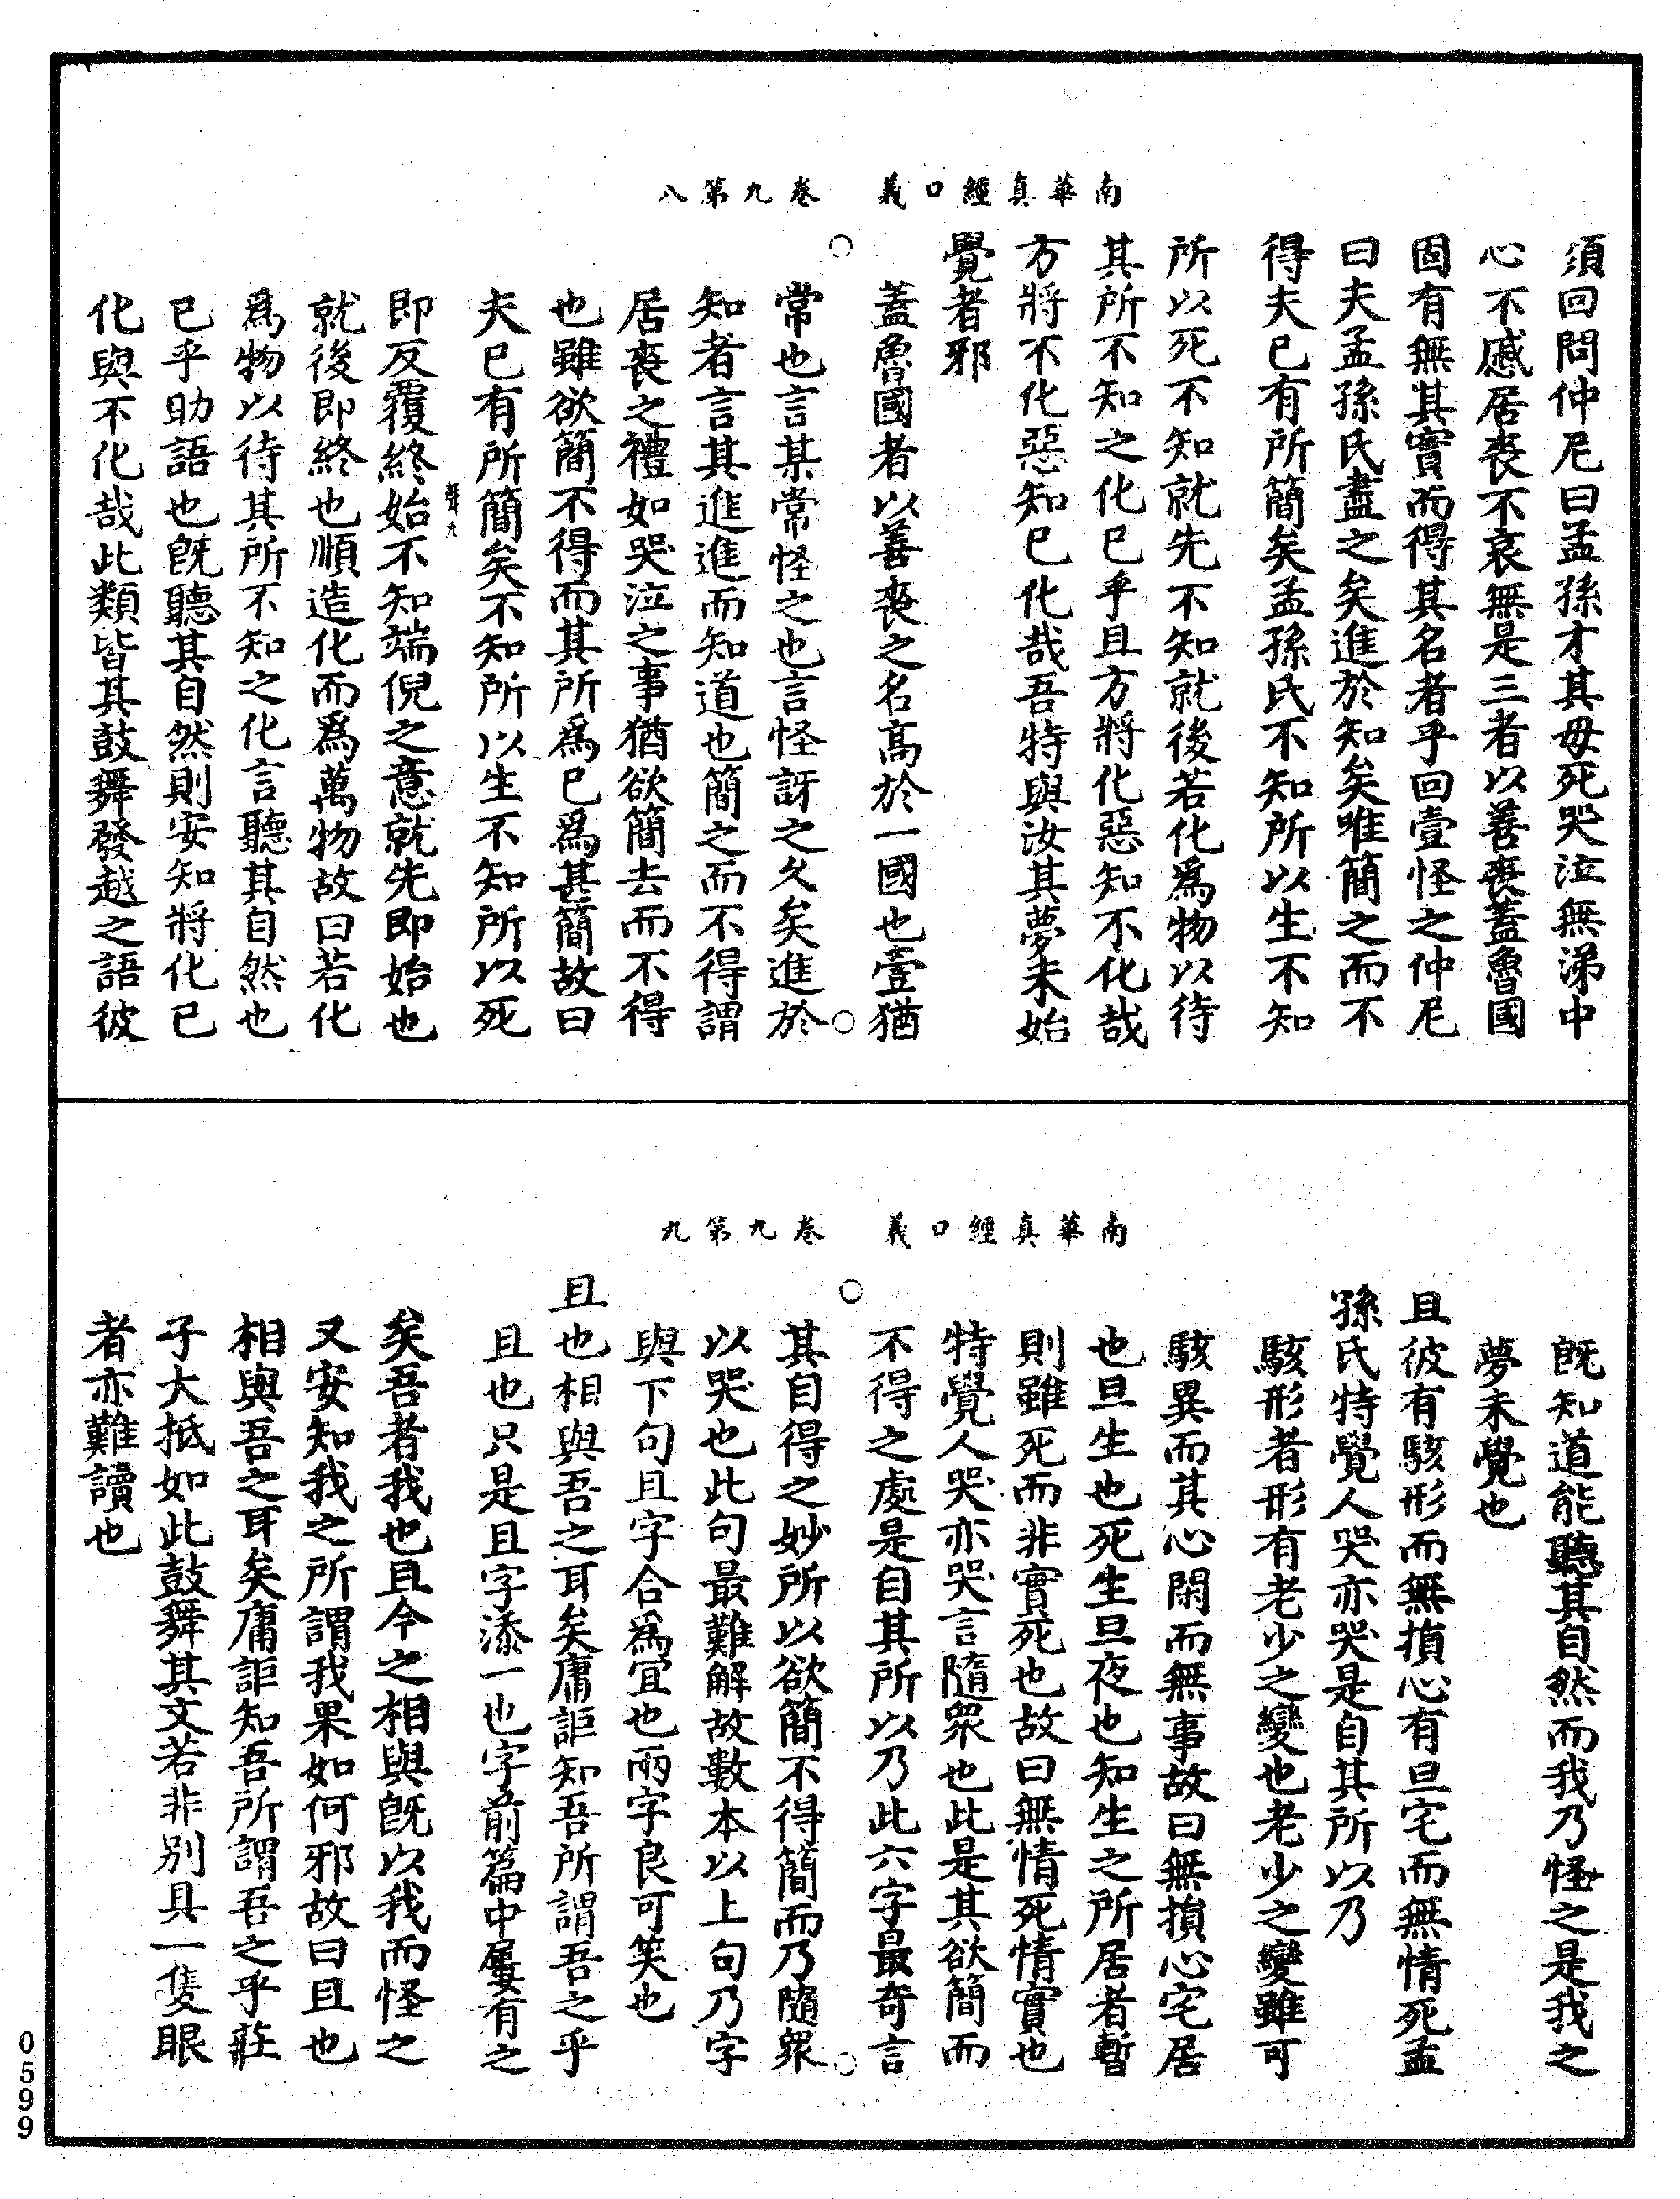 南華真經口義　卷九第八
須回問仲尼曰孟孫才其母死哭泣無涕中
心不慼居喪不哀無是三者以善喪蓋魯國
固有無其實而得其名者乎回壹怪之仲尼
曰夫孟孫氏盡之矣進於知矣唯簡之而不
得夫已有所簡矣孟孫氏不知所以生不知
所以死不知就先不知就後若化爲物以待
其所不知之化已乎且方將化惡知不化哉
方將不化惡知已化哉吾特與汝其夢未始
覺者邪
蓋魯國者以善喪之名高於一國也壹猶
常也言某常怪之也言怪訝之久矣進於
知者言其進進而知道也簡之而不得謂
居喪之禮如哭泣之事猶欲簡去而不得
也雖欲簡不得而其所爲已爲甚簡故曰
夫已有所簡矣不知所以生不知所以死
即反覆終始不知端倪之意就先即始也
就後即終也順造化而爲萬物故曰若化
爲物以待其所不知之化言聽其自然也
已乎助語也旣聽其自然則安知將化已
化與不化哉此類皆其鼓舞發越之語彼
南華真經口義　卷九第九
旣知道能聽其自然而我乃怪之是我之
夢未覺也
且彼有駭形而無損心有旦宅而無情死孟
孫氏特覺人哭亦哭是自其所以乃
駭形者形有老少之變也老少之變雖可
駭異而其心閑而無事故曰無損心宅居
也旦生也死生旦夜也知生之所居者暫
則雖死而非實死也故曰無情死情實也
特覺人哭亦哭言隨眾也此是其欲簡而
不得之處是自其所以乃此六字最奇言
其自得之妙所以欲簡不得簡而乃隨眾
以哭也此句最難解故數本以上句乃字
與下句且字合爲宜也兩字良可笑也
且也相與吾之耳矣庸詎知吾所謂吾之乎
且也只是且字添一也字前篇中屢有之
矣吾者我也且今之相與旣以我而怪之
又安知我之所謂我果如何邪故曰且也
相與吾之耳矣庸詎知吾所謂吾之乎莊
子大抵如此鼓舞其文若非別具一隻眼
者亦難讀也
0599